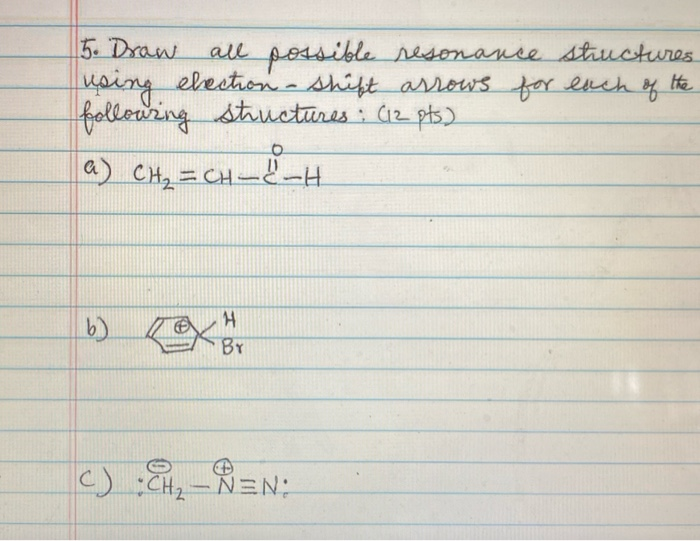 5. Draw all possible resonance structures
using election-shift arrows for each of the
following structures: (12 pts)
O
a) CH₂=CH-C-H
b) ⊕ H
Br
c) :CH₂-N≡N:
⊖ ⊕